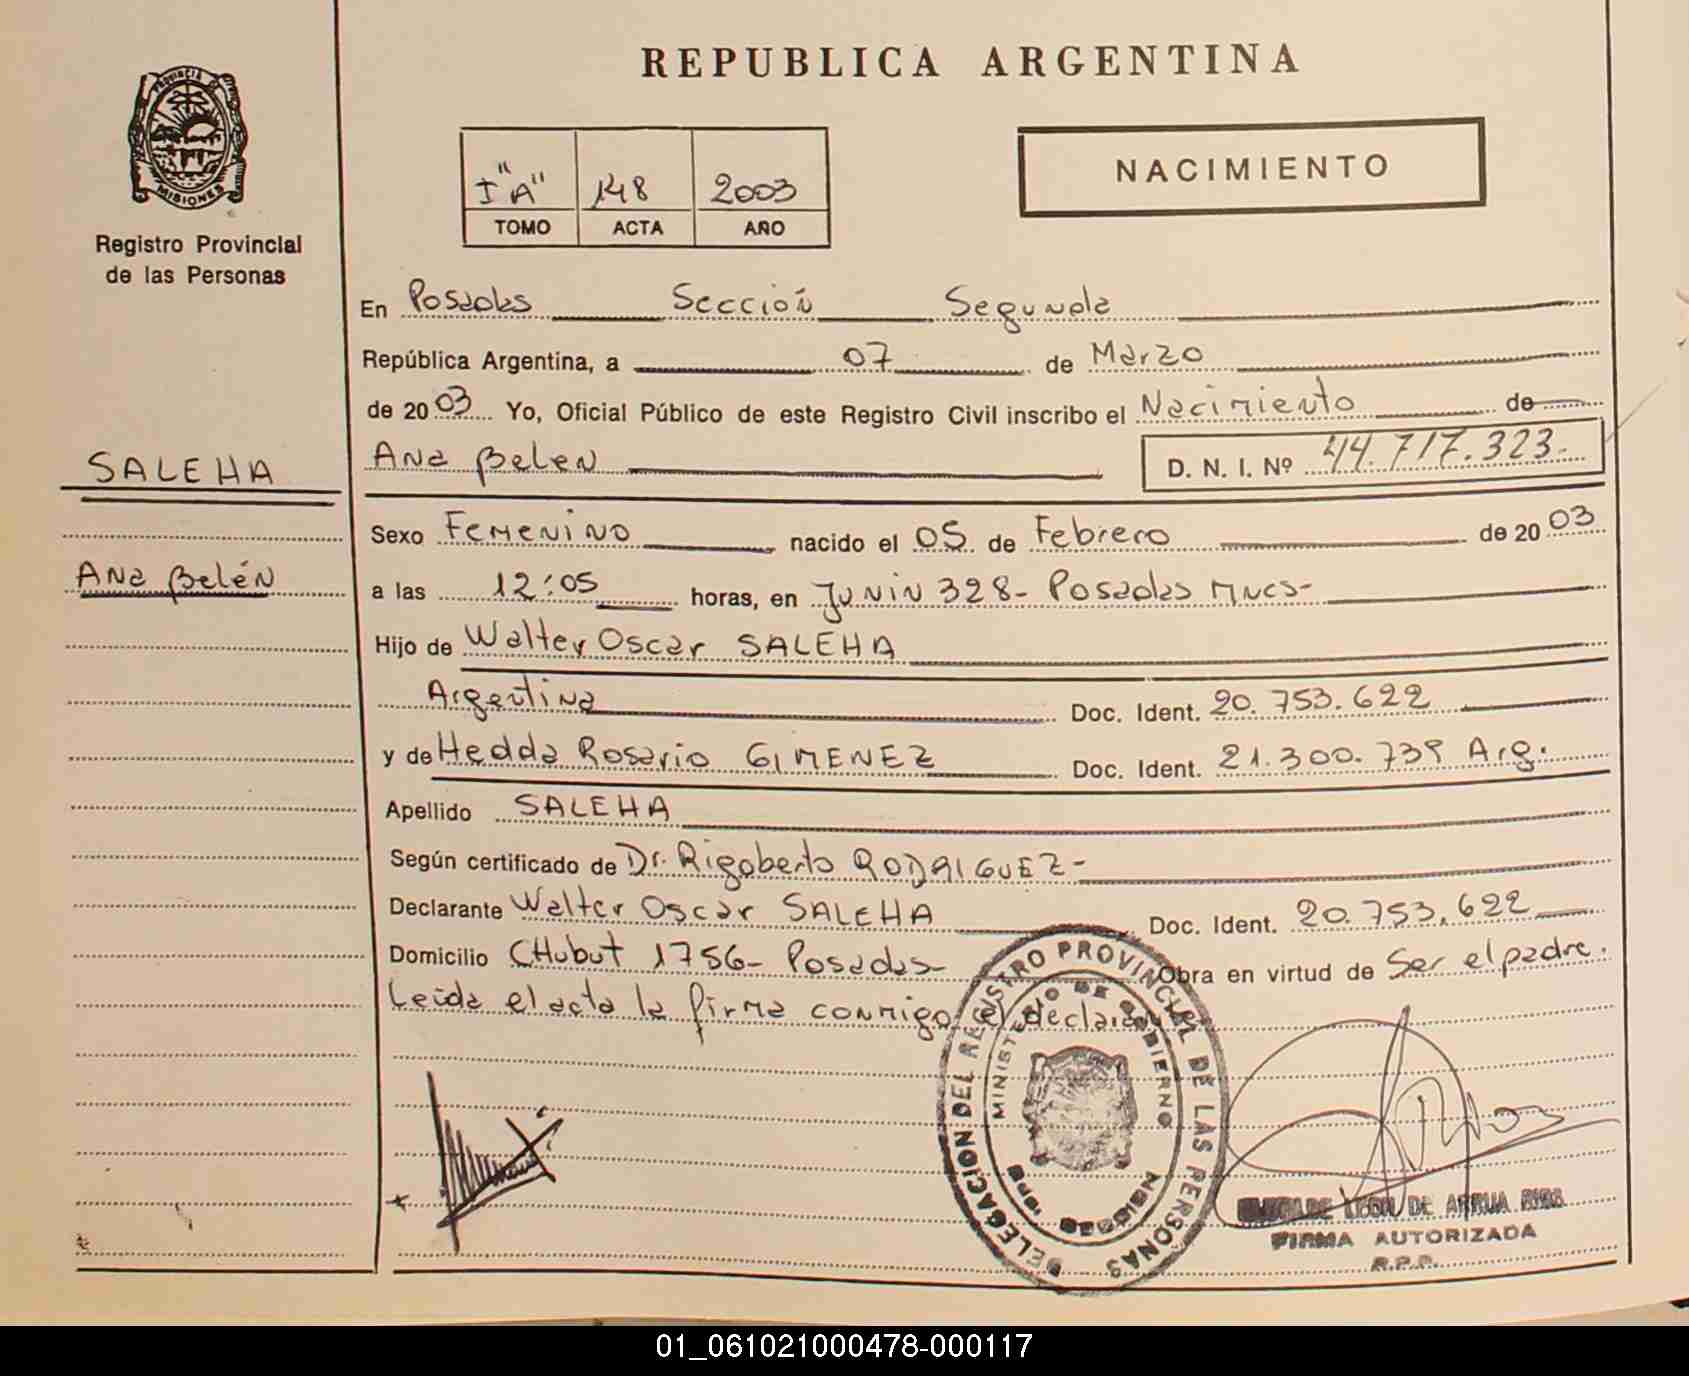 REPUBLICA ARGENTINA
PROVINCIA DE MISIONES
Registro Provincial
de las Personas
I "A" 148 2003
TOMO ACTA AÑO
NACIMIENTO
En Posadas Sección Segunda
República Argentina, a 07 de Marzo
de 2003 Yo, Oficial Público de este Registro Civil inscribo el Nacimiento de
Ana Belen D. N. I. Nº 44.717.323.-
SALEHA
Ana Belén
Sexo Femenino nacido el 05 de Febrero de 2003
a las 12:05 horas, en Junin 328- Posadas Mnes-
Hijo de Walter Oscar SALEHA
Argentina Doc. Ident. 20.753.622
y de Hedda Rosario GIMENEZ Doc. Ident. 21.300.739 Arg.
Apellido SALEHA
Según certificado de Dr. Rigoberto RODRIGUEZ-
Declarante Walter Oscar SALEHA Doc. Ident. 20.753.622
Domicilio CHubut 1756- Posadas- Obra en virtud de Ser el padre.
Leida el acta la firma conmigo el declarante
DELEGACION DEL REGISTRO PROVINCIAL DE LAS PERSONAS
MINISTERIO DE GOBIERNO
DE ARRUA RIOS
FIRMA AUTORIZADA
R.P.P.
01_061021000478-000117